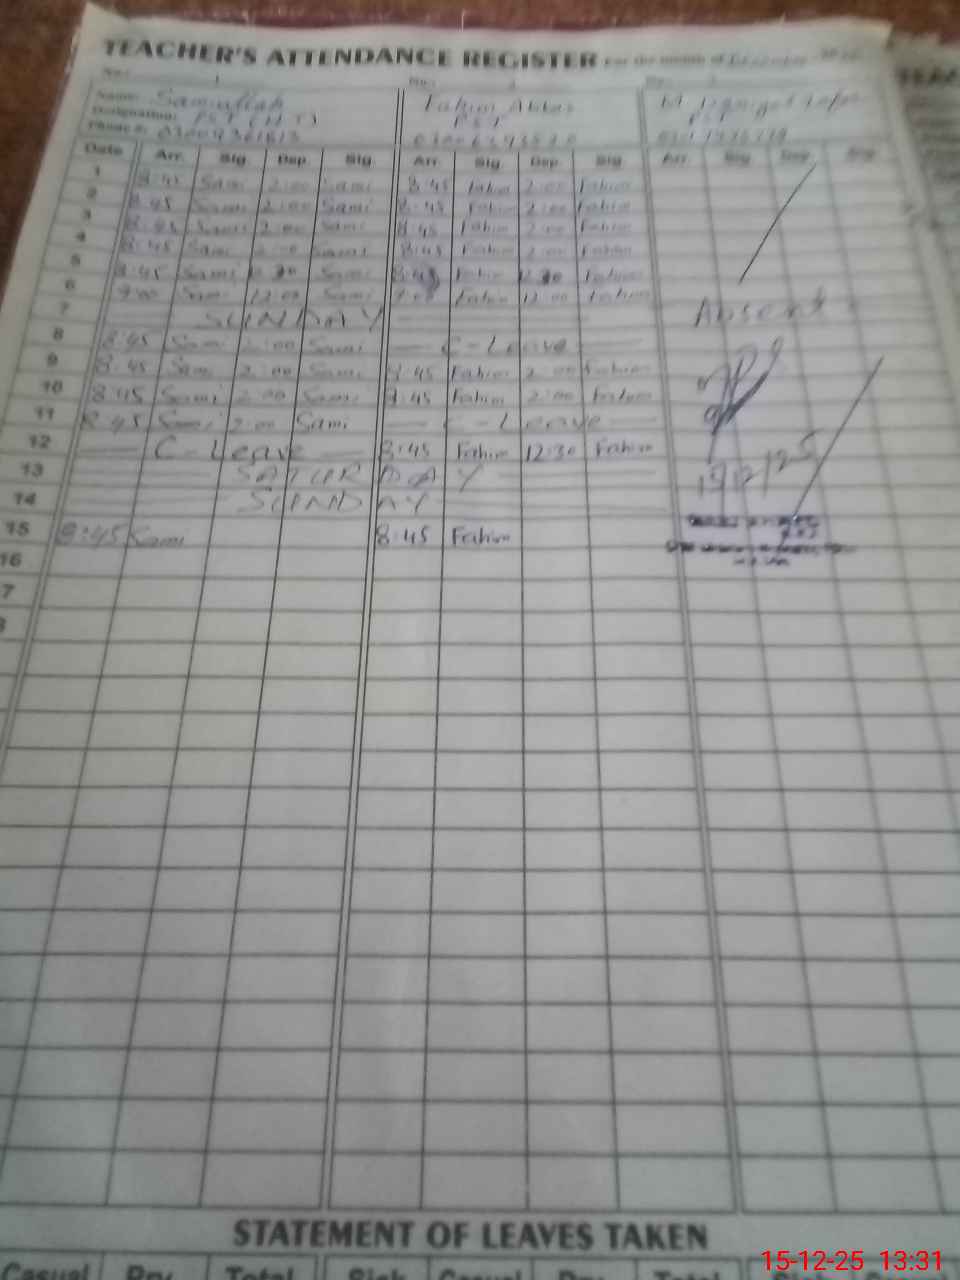 TEACHER'S ATTENDANCE REGISTER For the month of December
Name: Samiullah Fahim Abbas M.
Designation: PST (H.T) PST PST
Phone #:
Date Arr. Sig. Dep. Sig. Arr. Sig. Dep. Sig. Arr. Sig. Dep. Sig.
1 8:45 Sami 2:00 Sami 8:45 Fahim 2:00 Fahim
2 8:45 Sami 2:00 Sami 8:45 Fahim 2:00 Fahim
3 8:45 Sami 2:00 Sami 8:45 Fahim 2:00 Fahim
4 8:45 Sami 2:00 Sami 8:45 Fahim 2:00 Fahim
5 8:45 Sami 12:30 Sami 8:45 Fahim 12:30 Fahim
6 9:00 Sami 12:00 Sami 9:00 Fahim 12:00 Fahim
7 SUNDAY Absent
8 8:45 Sami 2:00 Sami C-Leave
9 8:45 Sami 2:00 Sami 8:45 Fahim 2:00 Fahim
10 8:45 Sami 2:00 Sami 8:45 Fahim 2:00 Fahim
11 8:45 Sami 2:00 Sami C-Leave
12 C-Leave 8:45 Fahim 12:30 Fahim
13 SATURDAY
14 SUNDAY
15 8:45 Sami 8:45 Fahim
16
7
8
STATEMENT OF LEAVES TAKEN
Casual Prv. Total Sick Casual Total Sick Casual
15-12-25 13:31